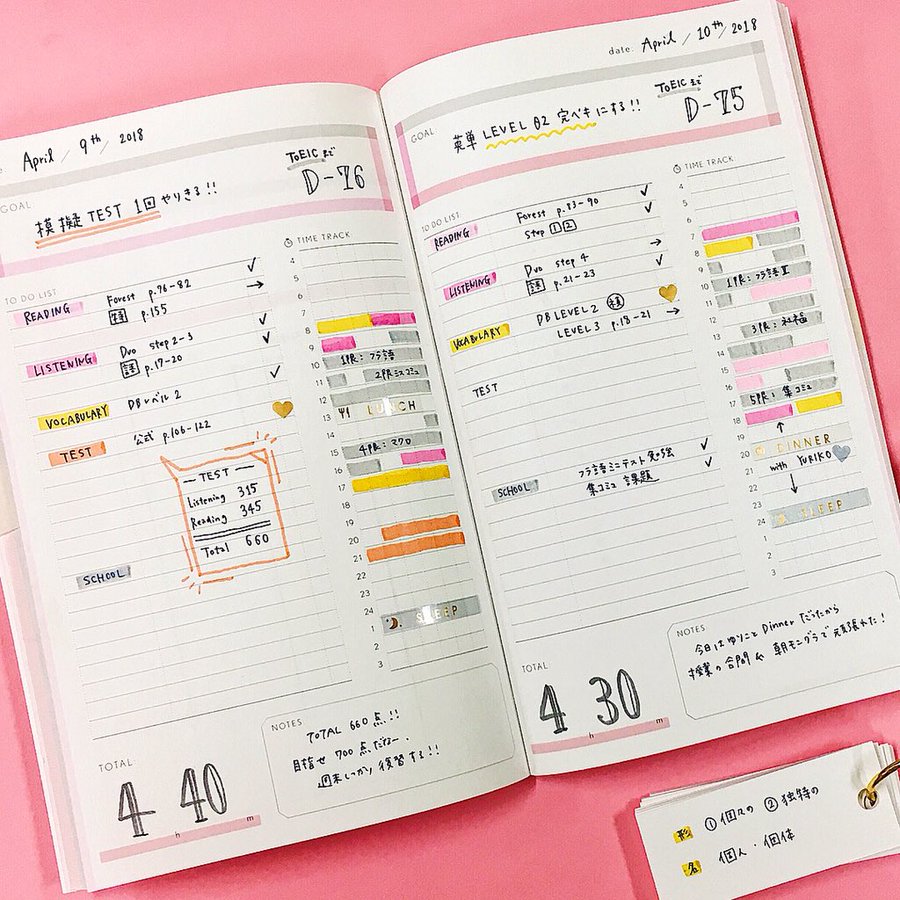 April / 9th / 2018
GOAL
模擬TEST 1回やりきる!!
TOEICまで
D-76
TO DO LIST
READING
Forest p.76-82
p.155
LISTENING
Duo step 2-3
p.17-20
VOCABULARY
DBレベル2
TEST
公式 p.106-122
— TEST —
Listening 315
Reading 345
Total 660
SCHOOL
TIME TRACK
4
5
6
7
8
9
10
1限:フラ語
11
2限
12
13
LUNCH
14
15
4限:マクロ
16
17
18
19
20
21
22
23
24
SLEEP
1
2
3
TOTAL
4 h 40 m
NOTES
TOTAL 660点!!
目指せ700点だなー.
週末しっかり復習する!!
date: April / 10th / 2018
GOAL:
英単LEVEL 02 完ペキにする!!
TOEICまで
D-75
TO DO LIST
READING
Forest p.83-90
Step 1 2
LISTENING
Duo step 4
p.21-23
VOCABULARY
DB LEVEL2
LEVEL3 p.18-21
TEST
SCHOOL
フラ語ミニテスト勉強
集コミュ 課題
TIME TRACK
4
5
6
7
8
9
10
1限:フラ語Ⅱ
11
12
3限:社福
13
14
15
16
17
5限:集コミュ
18
19
DINNER
20
with YURIKO
21
22
23
24
SLEEP
1
2
3
TOTAL
4 h 30 m
NOTES
今日はゆりことDinnerだったから
授業の合間や朝モングラで頑張れた!
形 ①個々の ②独特の
名 個人・個体